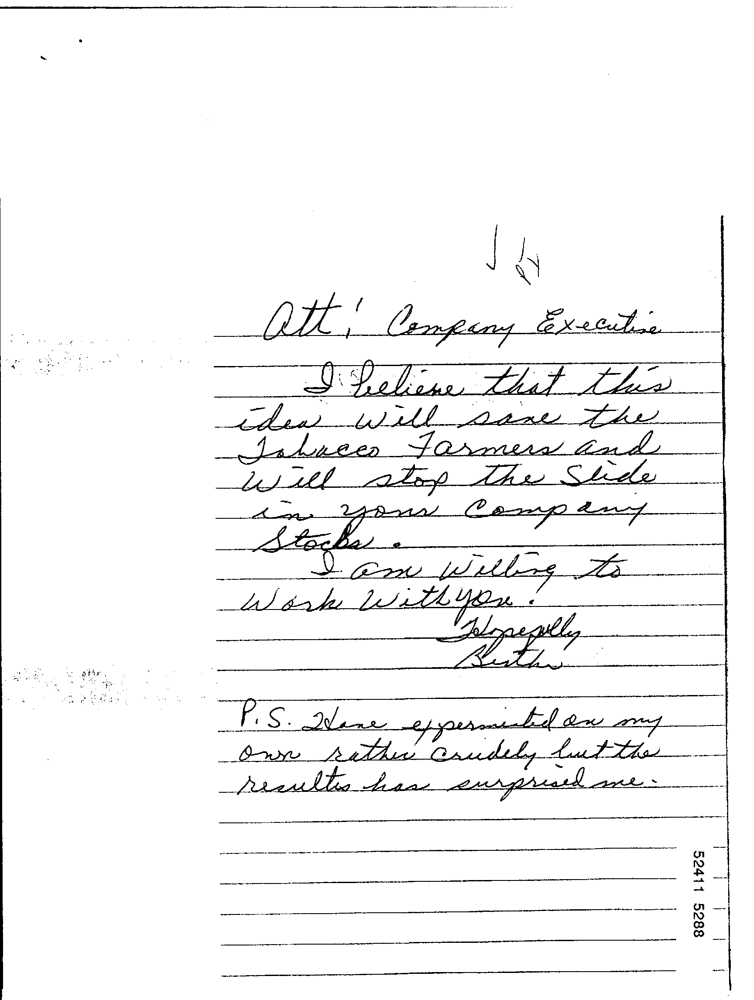 Att! Company Executive
I believe that this
idea will save the
Tobacco Farmers and
will stop the Slide
in your Company
Stocks.
I am Willing to
Work With you.
Hopefully
P.S. Have expermented on my
own rather crudely but the
results has surprised me.
52411 5288